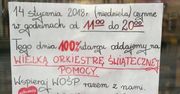 14 stycznia 2018r. (niedziela) czynne
w godzinach od 11⁰⁰ do 20⁰⁰
Tego dnia 100% utargu oddajemy na
WIELKĄ ORKIESTRĘ ŚWIĄTECZNEJ
POMOCY
Wspieraj WOŚP razem z nami.